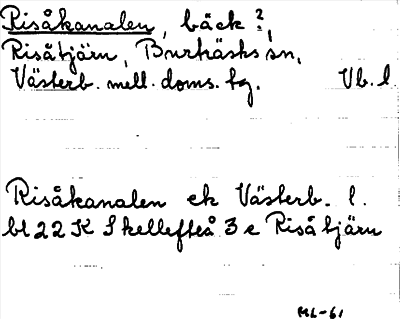 Risåkanalen, bäck?,
Risåtjärn, Burträsks sn,
Västerb. mell. doms. tg. Vb. l.
Risåkanalen ek Västerb. l.
bl 22 K Skellefteå 3 e Risåtjärn
ML-61